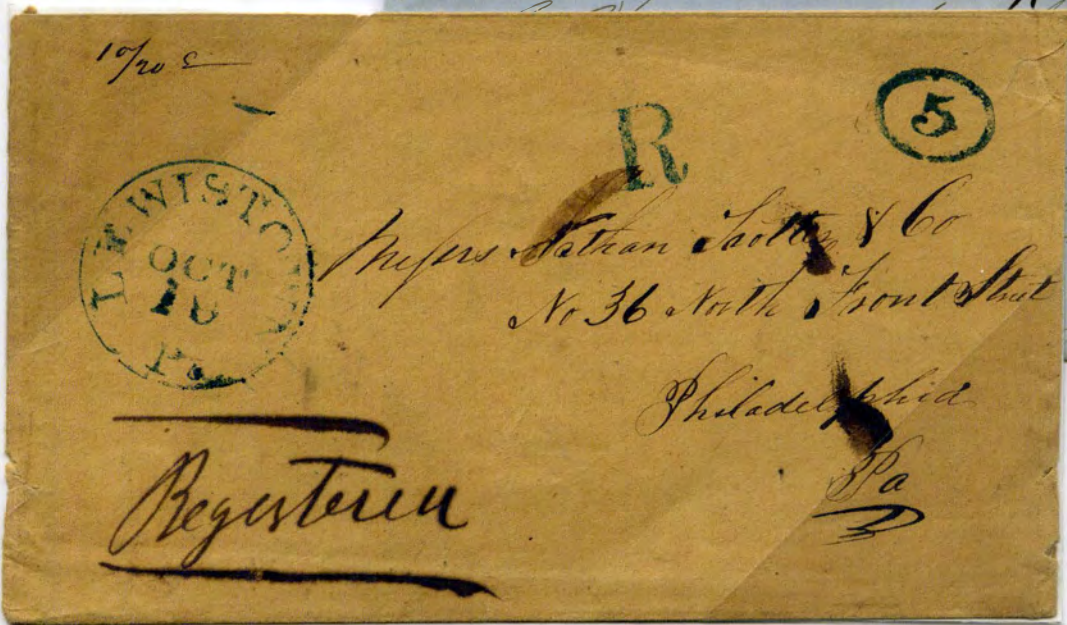 10/20 c
R
5
LEWISTOWN
OCT
18
Pa.
Messrs Nathan Trotter & Co
No 36 North Front Street
Philadelphia
Pa
Registered